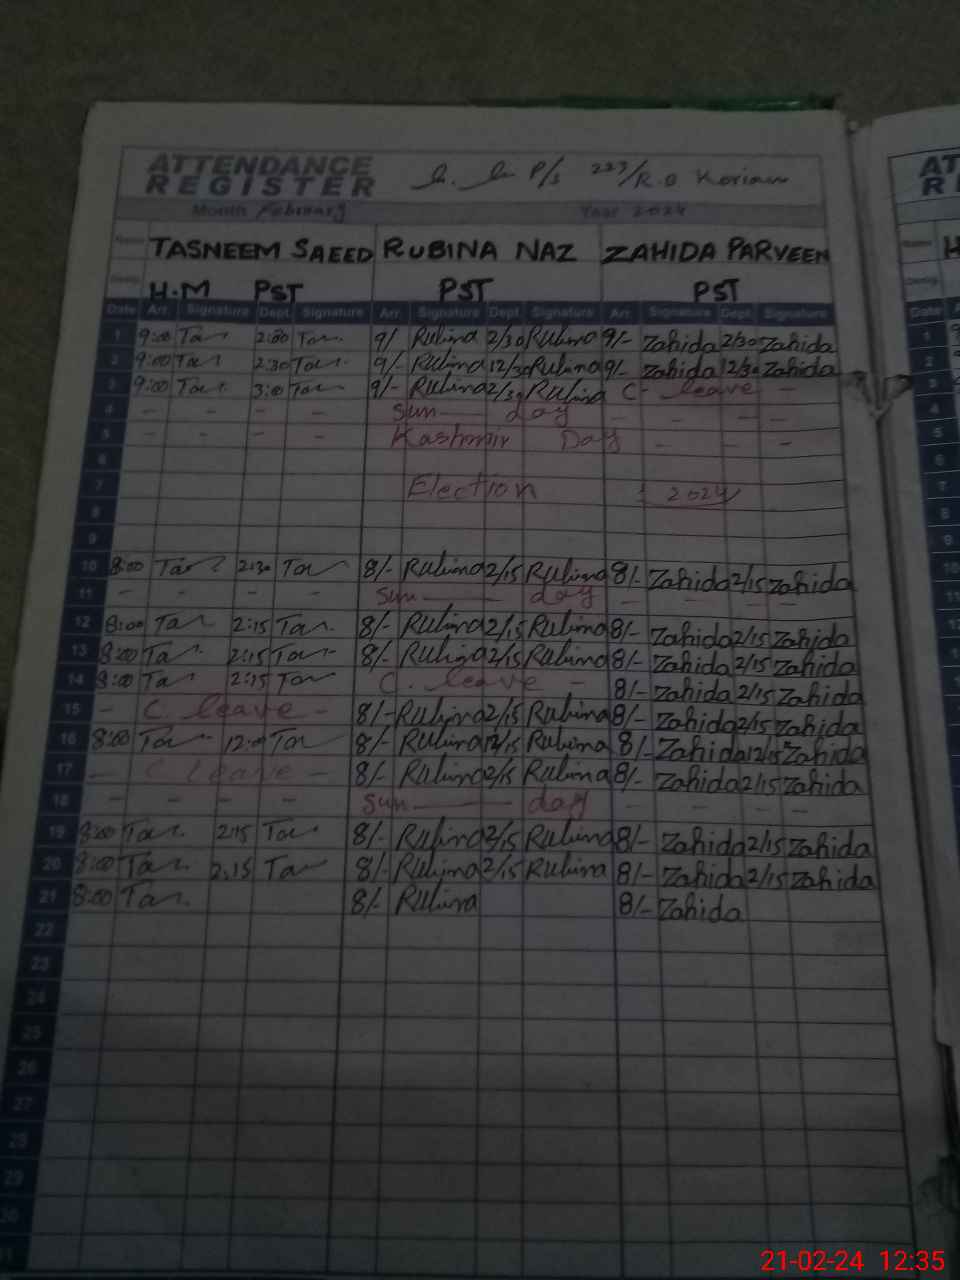 ATTENDANCE
REGISTER P/s 223/R.B Korian
Month February Year 2024
Name TASNEEM SAEED RUBINA NAZ ZAHIDA PARVEEN
H.M PST PST PST
Date Arr. Signature Dept. Signature Arr. Signature Dept Signature Arr. Signature Dept. Signature
1 9:00 Tas 2:00 Tas 9/- Rubina 2/30 Rubina 9/- Zahida 2/30 Zahida
2 9:00 Tas 2:30 Tas 9/- Rubina 12/30 Rubina 9/- Zahida 12/30 Zahida
3 9:00 Tas 3:00 Tas 9/- Rubina 2/30 Rubina C- leave -
4 - - - - Sun —— day - - - -
5 - - - - Kashmir Day - - -
6
7 Election : 2024
8
9
10 8:00 Tas 2:30 Tas 8/- Rubina 2/15 Rubina 8/- Zahida 2/15 Zahida
11 - - - - Sun —— day - - - -
12 8:00 Tas 2:15 Tas 8/- Rubina 2/15 Rubina 8/- Zahida 2/15 Zahida
13 8:00 Tas 2:15 Tas 8/- Rubina 2/15 Rubina 8/- Zahida 2/15 Zahida
14 8:00 Tas 2:15 Tas C. leave - 8/- Zahida 2/15 Zahida
15 - C. leave - 8/- Rubina 2/15 Rubina 8/- Zahida 2/15 Zahida
16 8:00 Tas 12:00 Tas 8/- Rubina 12/15 Rubina 8/- Zahida 12/15 Zahida
17 - C leave - 8/- Rubina 2/15 Rubina 8/- Zahida 2/15 Zahida
18 - - - - Sun —— day - - - -
19 8:00 Tas 2:15 Tas 8/- Rubina 2/15 Rubina 8/- Zahida 2/15 Zahida
20 8:00 Tas 2:15 Tas 8/- Rubina 2/15 Rubina 8/- Zahida 2/15 Zahida
21 8:00 Tas 8/- Rubina 8/- Zahida
22
23
24
25
26
27
28
29
30
31
21-02-24 12:35